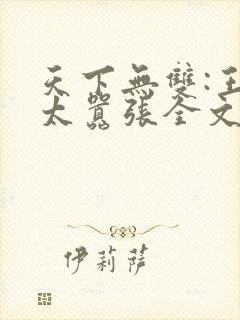 天下無雙:王
太囂張全文
伊莉薩